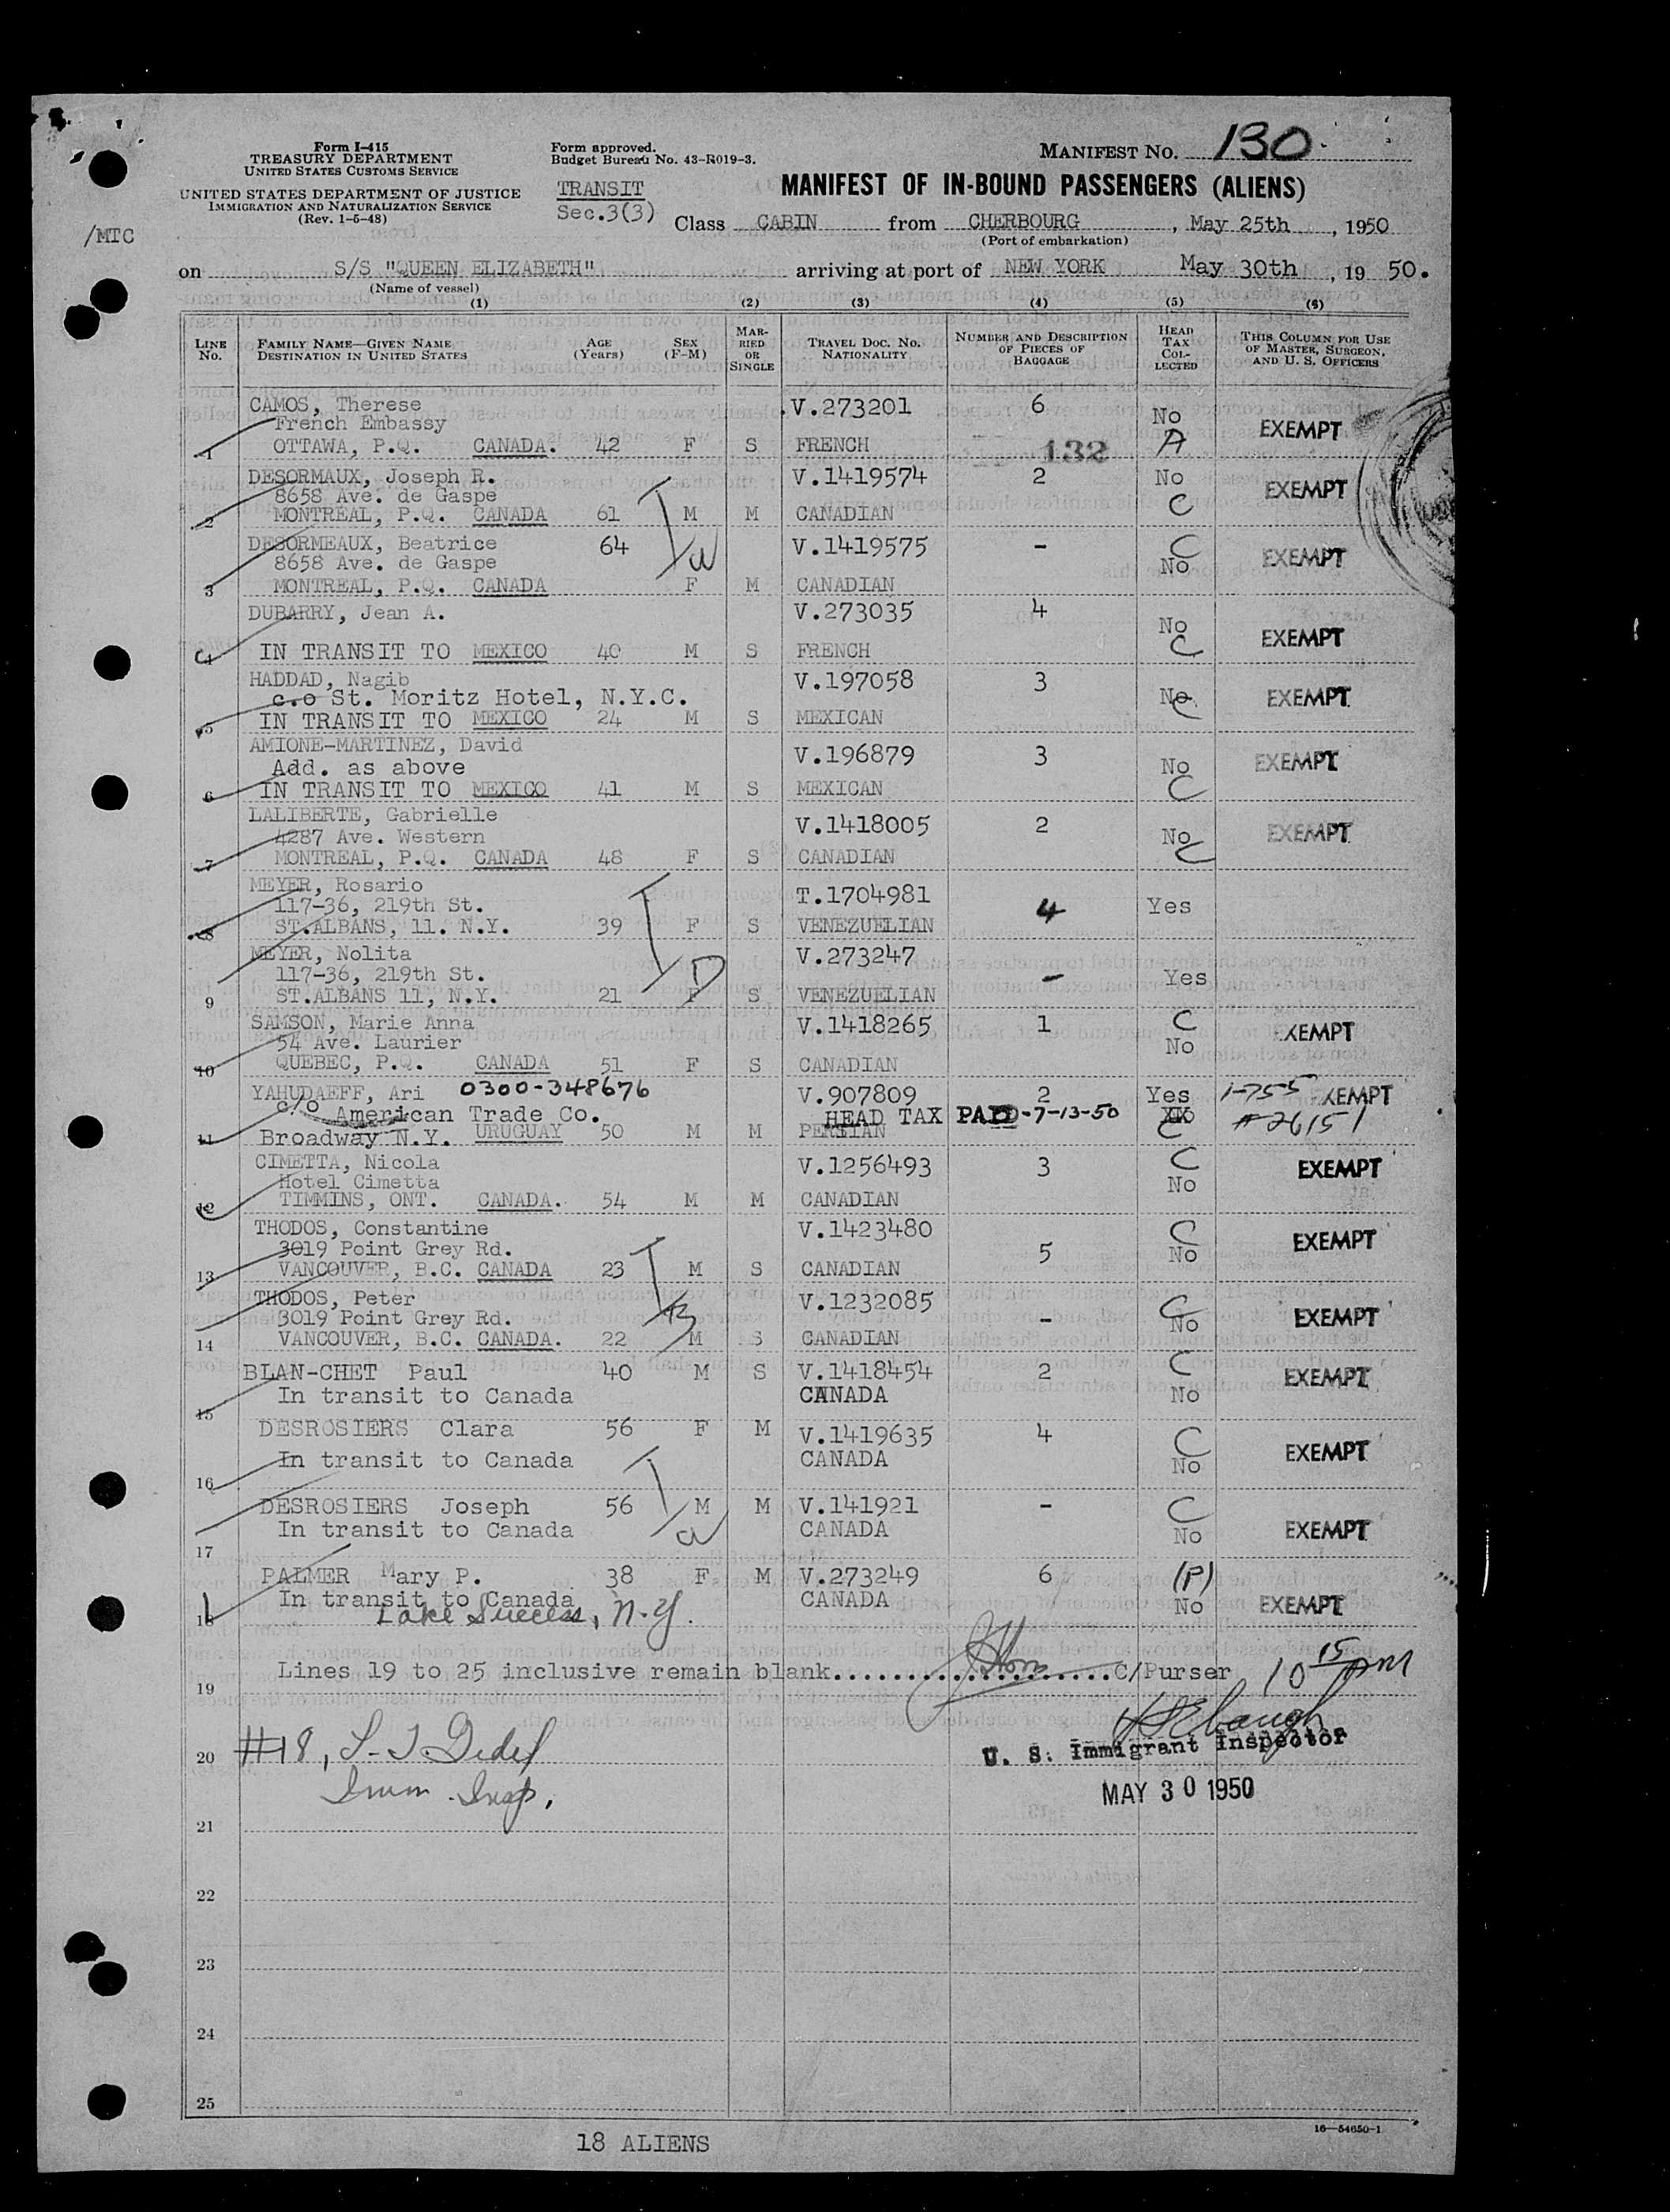 Form I-415
TREASURY DEPARTMENT
UNITED STATES CUSTOMS SERVICE
UNITED STATES DEPARTMENT OF JUSTICE
IMMIGRATION AND NATURALIZATION SERVICE
(Rev. 1-5-48)
/MTC
Form approved.
Budget Bureau No. 43-R019-3.
TRANSIT
Sec.3(3)
MANIFEST NO. 130
MANIFEST OF IN-BOUND PASSENGERS (ALIENS)
Class CABIN from CHERBOURG, May 25th, 1950
(Port of embarkation)
on S/S "QUEEN ELIZABETH" arriving at port of NEW YORK May 30th, 19 50.
(Name of vessel)
(1) (2) (3) (4) (5) (6)
LINE No. FAMILY NAME—GIVEN NAME DESTINATION IN UNITED STATES AGE (Years) SEX (F-M) MARRIED OR SINGLE TRAVEL DOC. NO. NATIONALITY NUMBER AND DESCRIPTION OF PIECES OF BAGGAGE HEAD TAX COLLECTED THIS COLUMN FOR USE OF MASTER, SURGEON, AND U. S. OFFICERS
CAMOS, Therese V.273201 6 No
French Embassy EXEMPT
1 OTTAWA, P.Q. CANADA. 42 F S FRENCH 132 A
DESORMAUX, Joseph R. V.1419574 2 No
8658 Ave. de Gaspe EXEMPT
2 MONTREAL, P.Q. CANADA 61 M M CANADIAN C
DESORMEAUX, Beatrice 64 V.1419575 - C
8658 Ave. de Gaspe W No EXEMPT
3 MONTREAL, P.Q. CANADA F M CANADIAN
DUBARRY, Jean A. V.273035 4
No EXEMPT
4 IN TRANSIT TO MEXICO 40 M S FRENCH C
HADDAD, Nagib V.197058 3
c.o St. Moritz Hotel, N.Y.C. No EXEMPT
5 IN TRANSIT TO MEXICO 24 M S MEXICAN C
AMIONE-MARTINEZ, David V.196879 3
Add. as above No EXEMPT
6 IN TRANSIT TO MEXICO 41 M S MEXICAN C
LALIBERTE, Gabrielle V.1418005 2
4287 Ave. Western No EXEMPT
7 MONTREAL, P.Q. CANADA 48 F S CANADIAN C
MEYER, Rosario T.1704981
117-36, 219th St. 4 Yes
8 ST.ALBANS, 11. N.Y. 39 F S VENEZUELIAN
MEYER, Nolita V.273247
117-36, 219th St. D - Yes
9 ST.ALBANS 11, N.Y. 21 F S VENEZUELIAN
SAMSON, Marie Anna V.1418265 1 C
54 Ave. Laurier No EXEMPT
10 QUEBEC, P.Q. CANADA 51 F S CANADIAN
YAHUDAEFF, Ari 0300-348676 V.907809 2 Yes 1-755 EXEMPT
c/o American Trade Co. HEAD TAX PAID-7-13-50 #26151
11 Broadway N.Y. URUGUAY 50 M M PERSIAN C
CIMETTA, Nicola V.1256493 3 C EXEMPT
Hotel Cimetta No
12 TIMMINS, ONT. CANADA. 54 M M CANADIAN
THODOS, Constantine V.1423480 C
3019 Point Grey Rd. 5 No EXEMPT
13 VANCOUVER, B.C. CANADA 23 M S CANADIAN
THODOS, Peter V.1232085 C
3019 Point Grey Rd. - No EXEMPT
14 VANCOUVER, B.C. CANADA. 22 M S CANADIAN
BLAN-CHET Paul 40 M S V.1418454 2 C EXEMPT
15 In transit to Canada CANADA No
DESROSIERS Clara 56 F M V.1419635 4 C EXEMPT
16 In transit to Canada CANADA No
DESROSIERS Joseph 56 M M V.141921 - C
In transit to Canada W CANADA No EXEMPT
17
PALMER Mary P. 38 F M V.273249 6 (P)
In transit to Canada CANADA No EXEMPT
18 Lake Success, N.Y.
19 Lines 19 to 25 inclusive remain blank......................C/Purser 10 15 pm
20 #18, Imm. Insp.
U. S. Immigrant Inspector
MAY 30 1950
21
22
23
24
25
16—54650-1
18 ALIENS